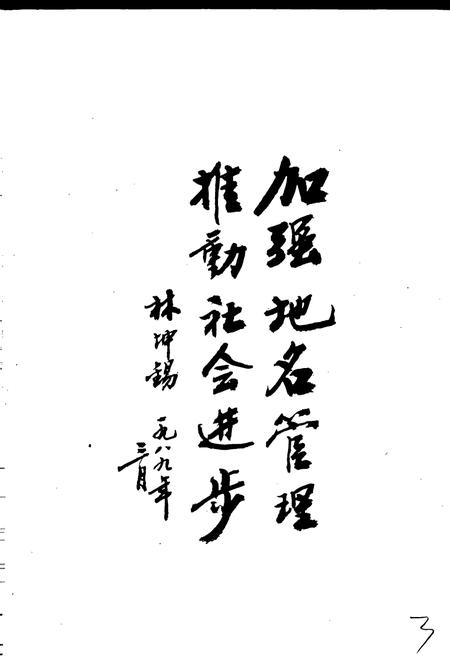 加强地名管理
推動社会进步
林坤錫 一九八九年
三月
3